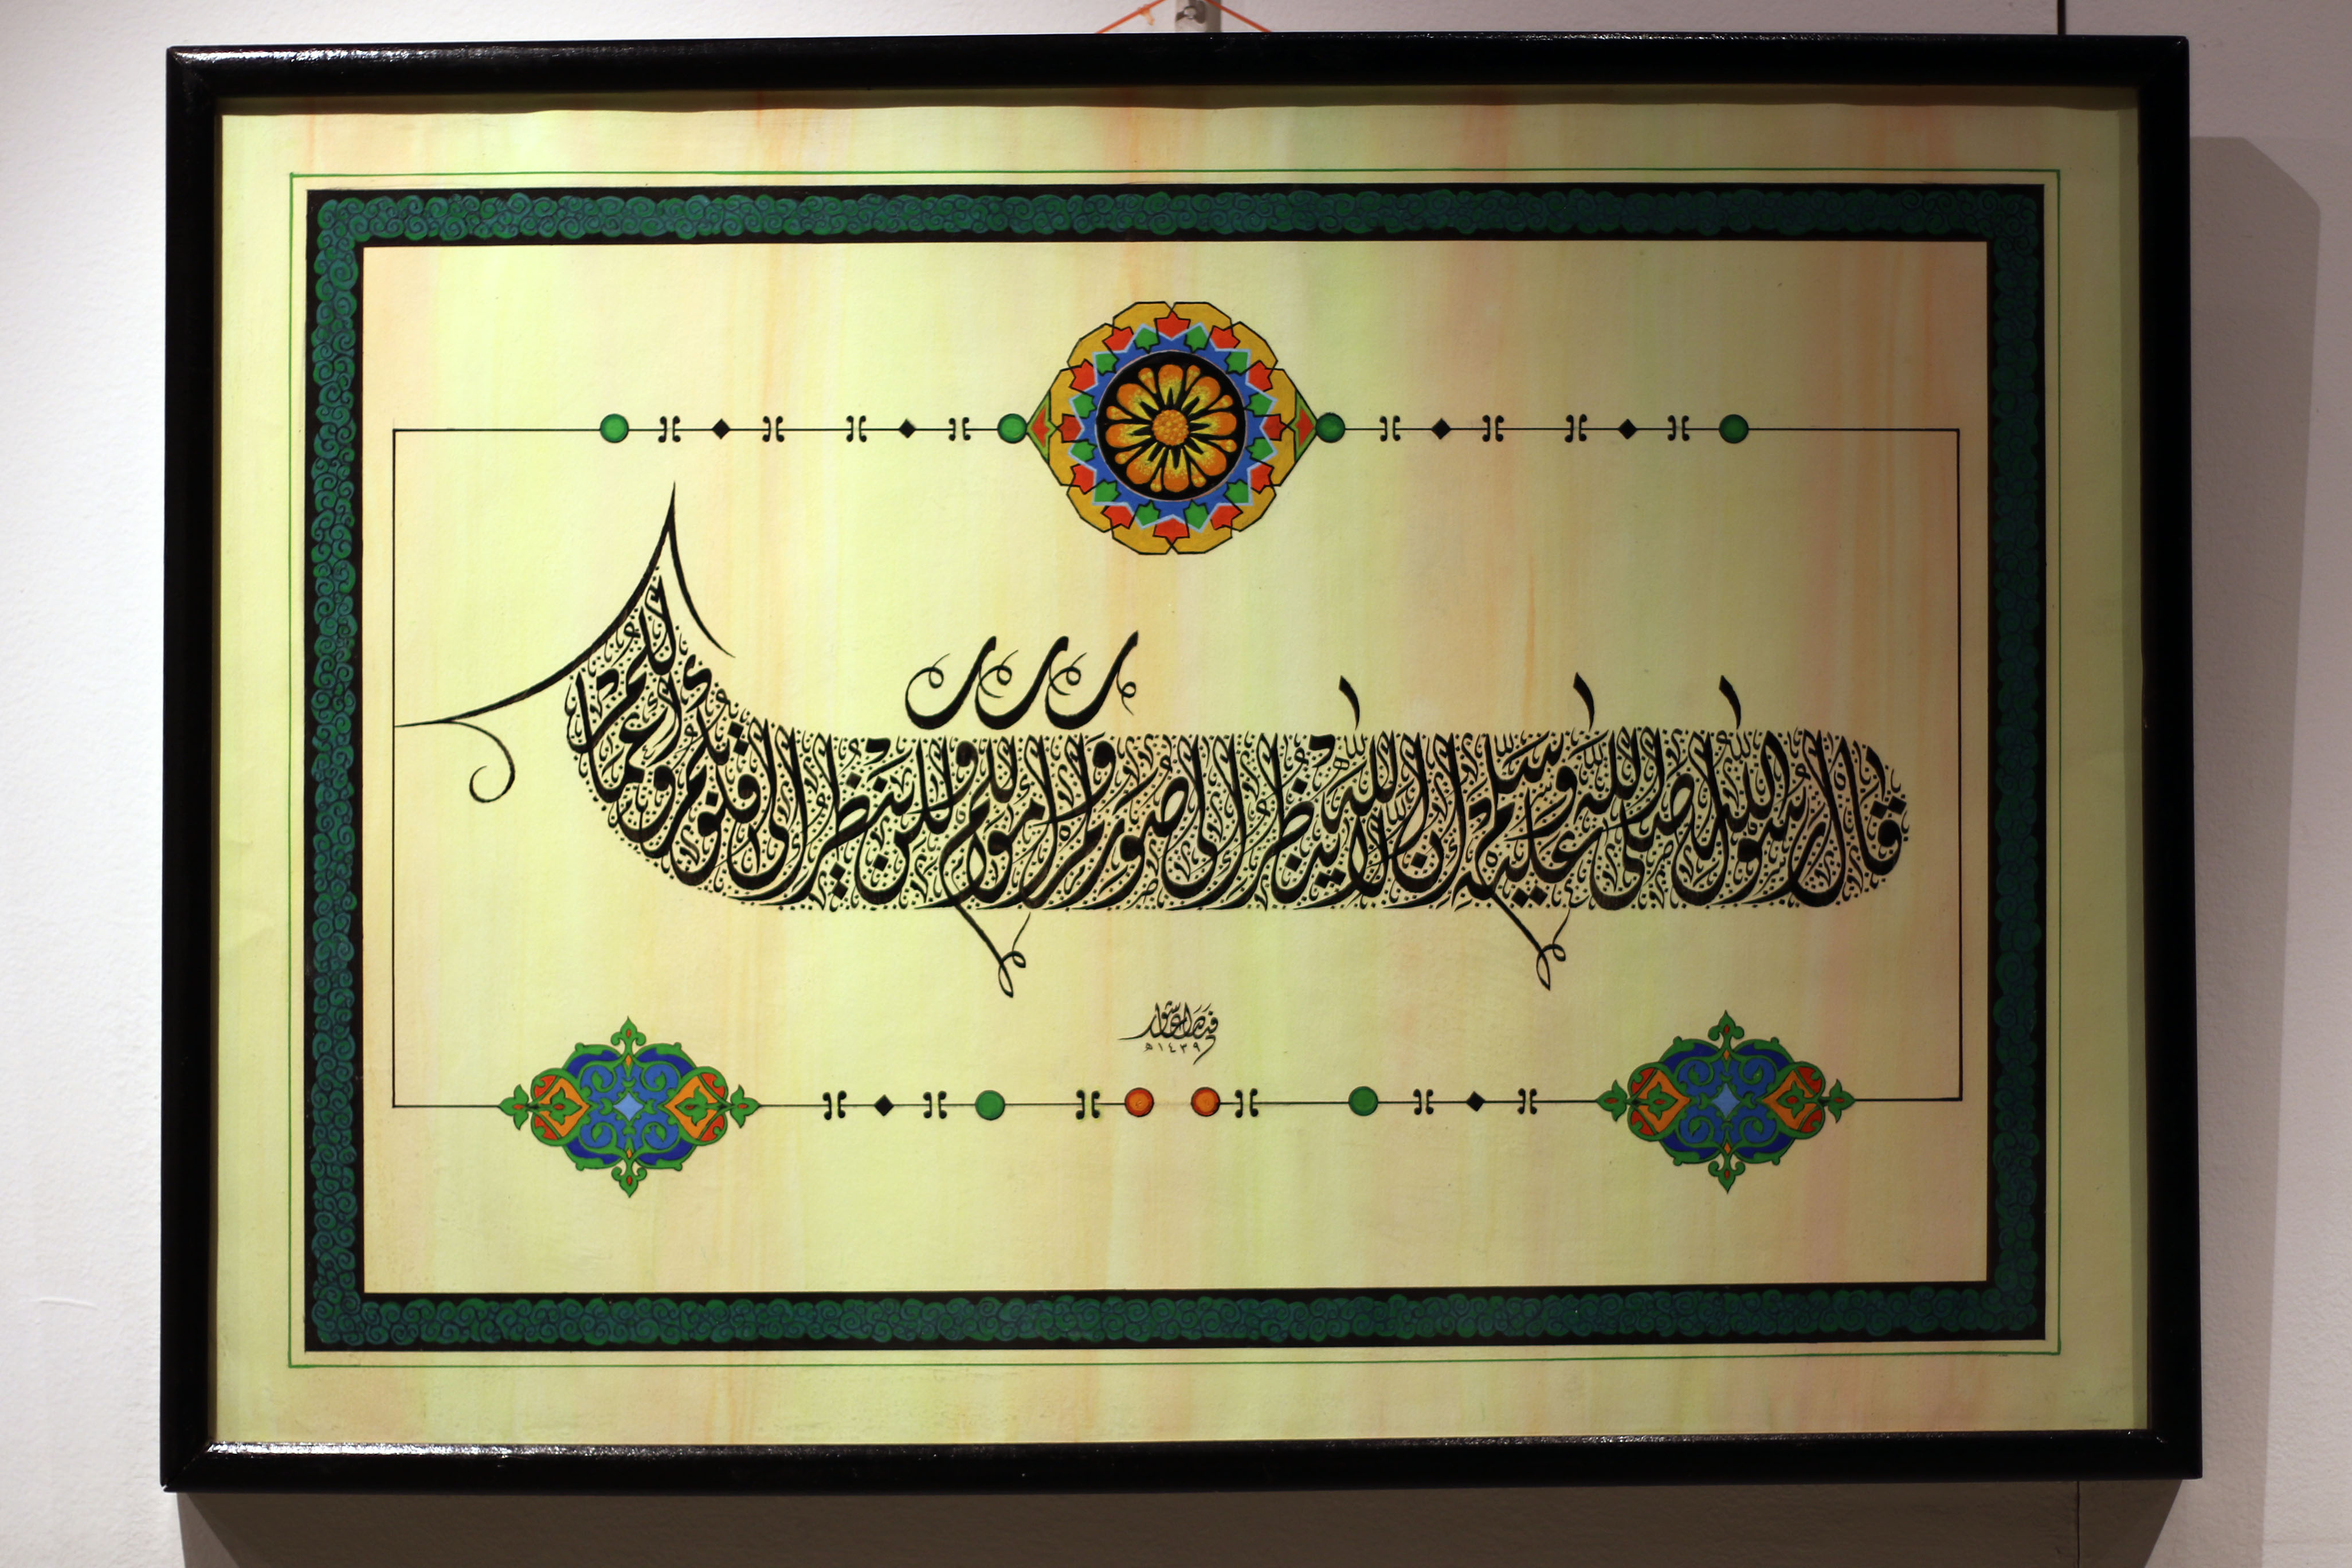 قال رسول الله صلى الله عليه وسلم إن الله لا ينظر إلى صوركم وأموالكم ولكن ينظر إلى قلوبكم وأعمالكم
١٤٣٩هـ